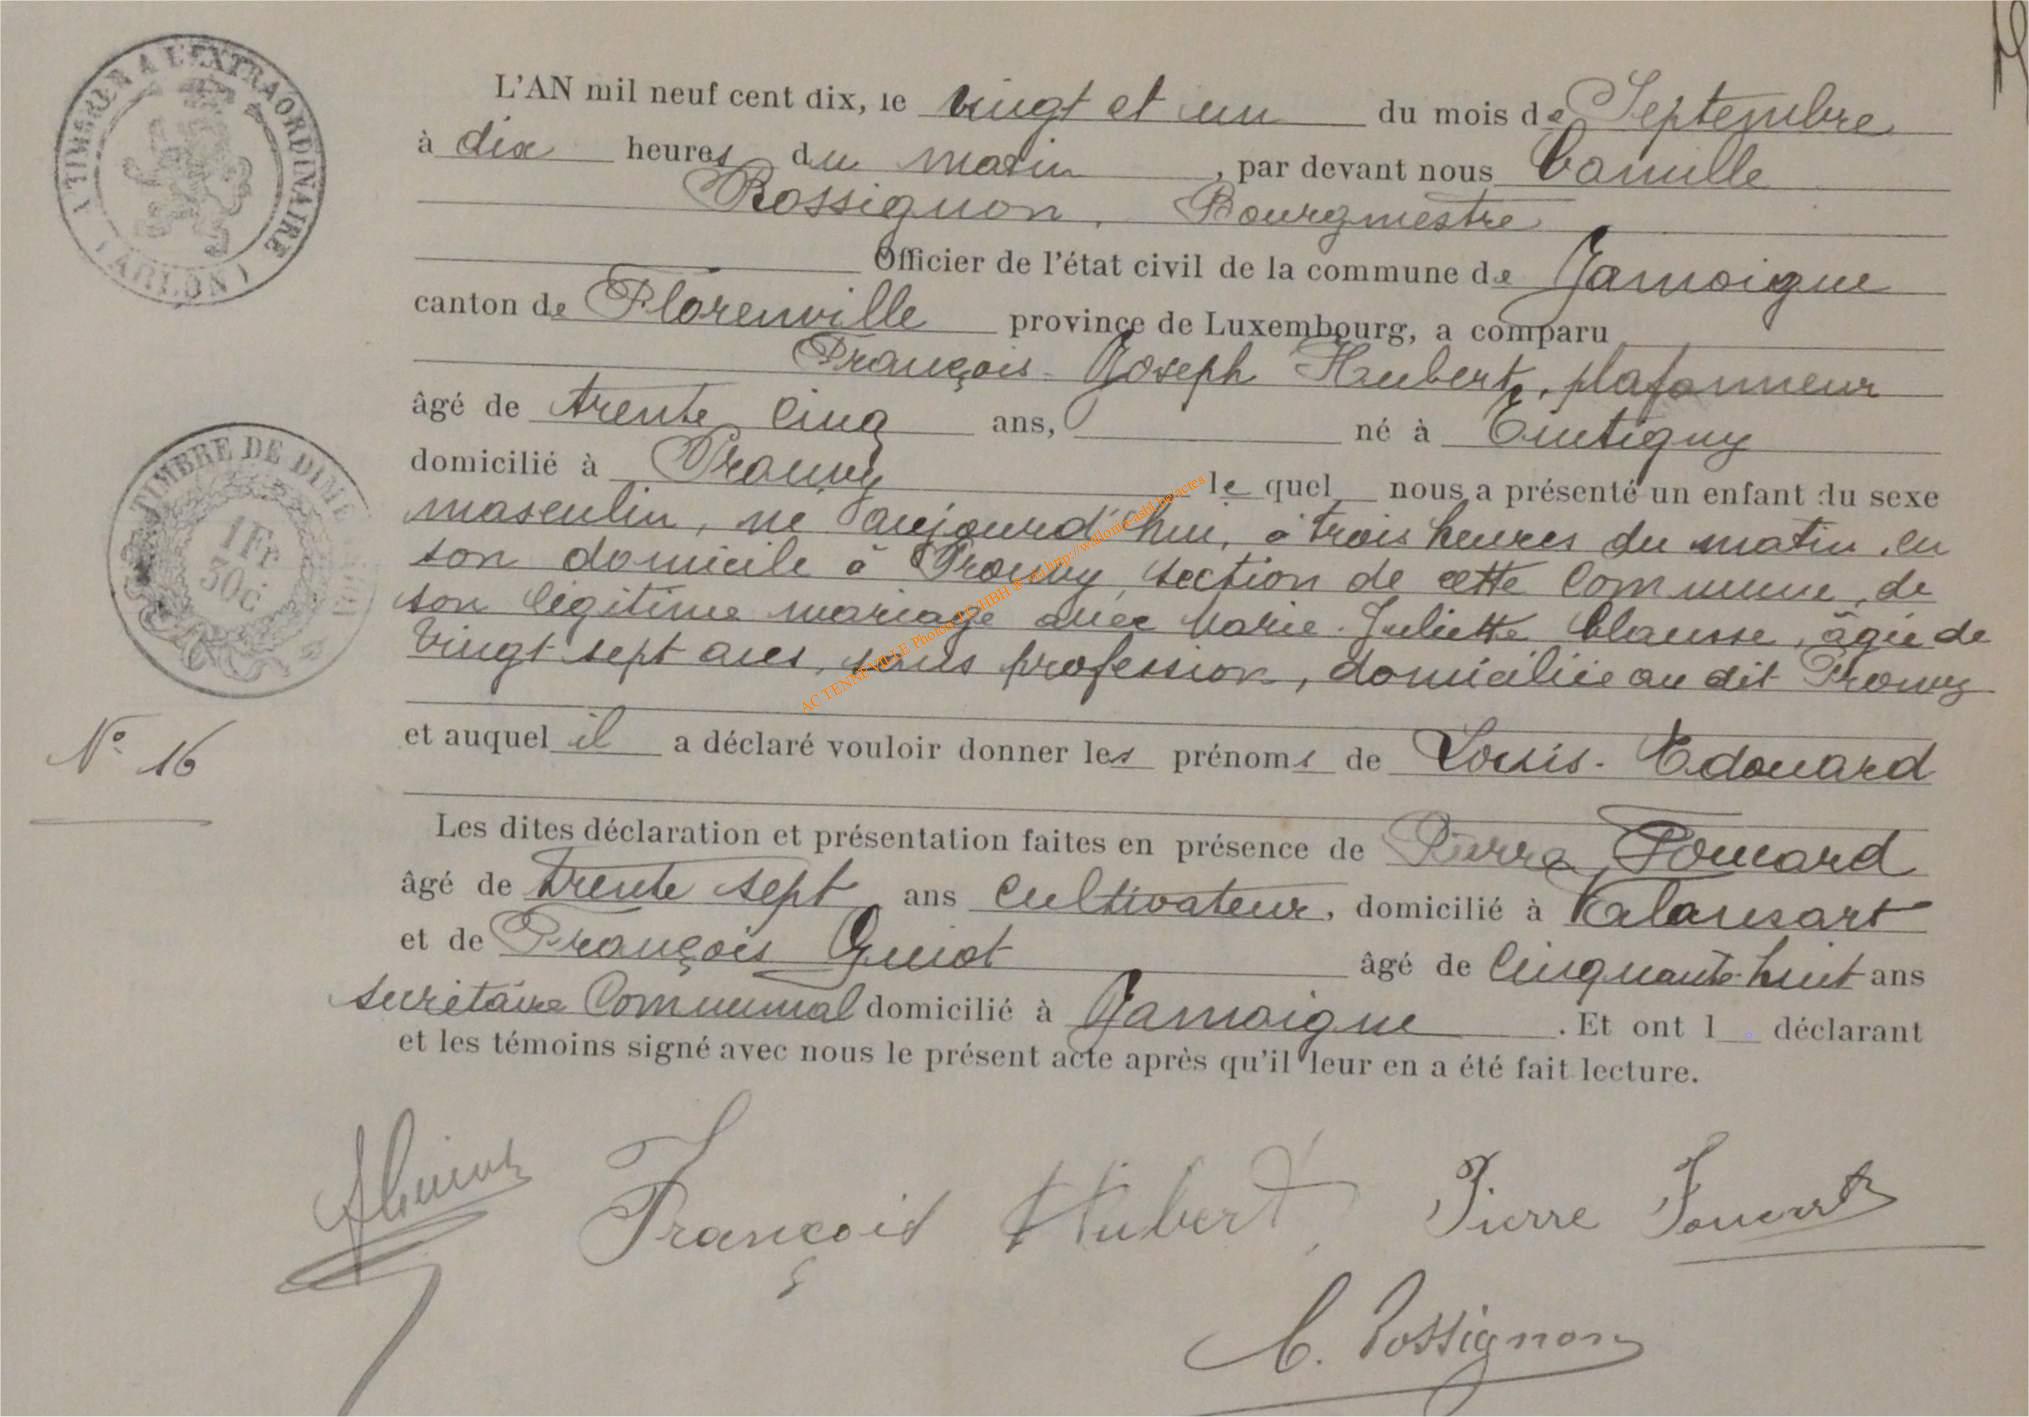 A TIMBRER A L'EXTRAORDINAIRE
(ARLON)
L'AN mil neuf cent dix, le vingt et un du mois de Septembre
à dix heures du matin, par devant nous Camille
Rossignon, Bourgmestre
Officier de l'état civil de la commune de Jamoigne
canton de Florenville province de Luxembourg, a comparu
François-Joseph Hubert, plafonneur
âgé de trente cinq ans, né à Tintigny
domicilié à Prouvy le quel nous a présenté un enfant du sexe
masculin, né aujourd'hui, à trois heures du matin, en
son domicile à Prouvy, section de cette commune, de
son légitime mariage avec Marie-Juliette Clausse, âgée de
vingt sept ans, sans profession, domiciliée au dit Prouvy
et auquel il a déclaré vouloir donner les prénoms de Louis-Edouard
Les dites déclaration et présentation faites en présence de Pierre Foucard
âgé de trente sept ans cultivateur, domicilié à Valansart
et de François Guiot âgé de cinquante-huit ans
secrétaire communal domicilié à Jamoigne. Et ont l déclarant
et les témoins signé avec nous le présent acte après qu'il leur en a été fait lecture.
TIMBRE DE DIME
1 Fr
30c
N° 16
AC TENNEVILLE Photos
François Hubert
Pierre
C. Rossignon